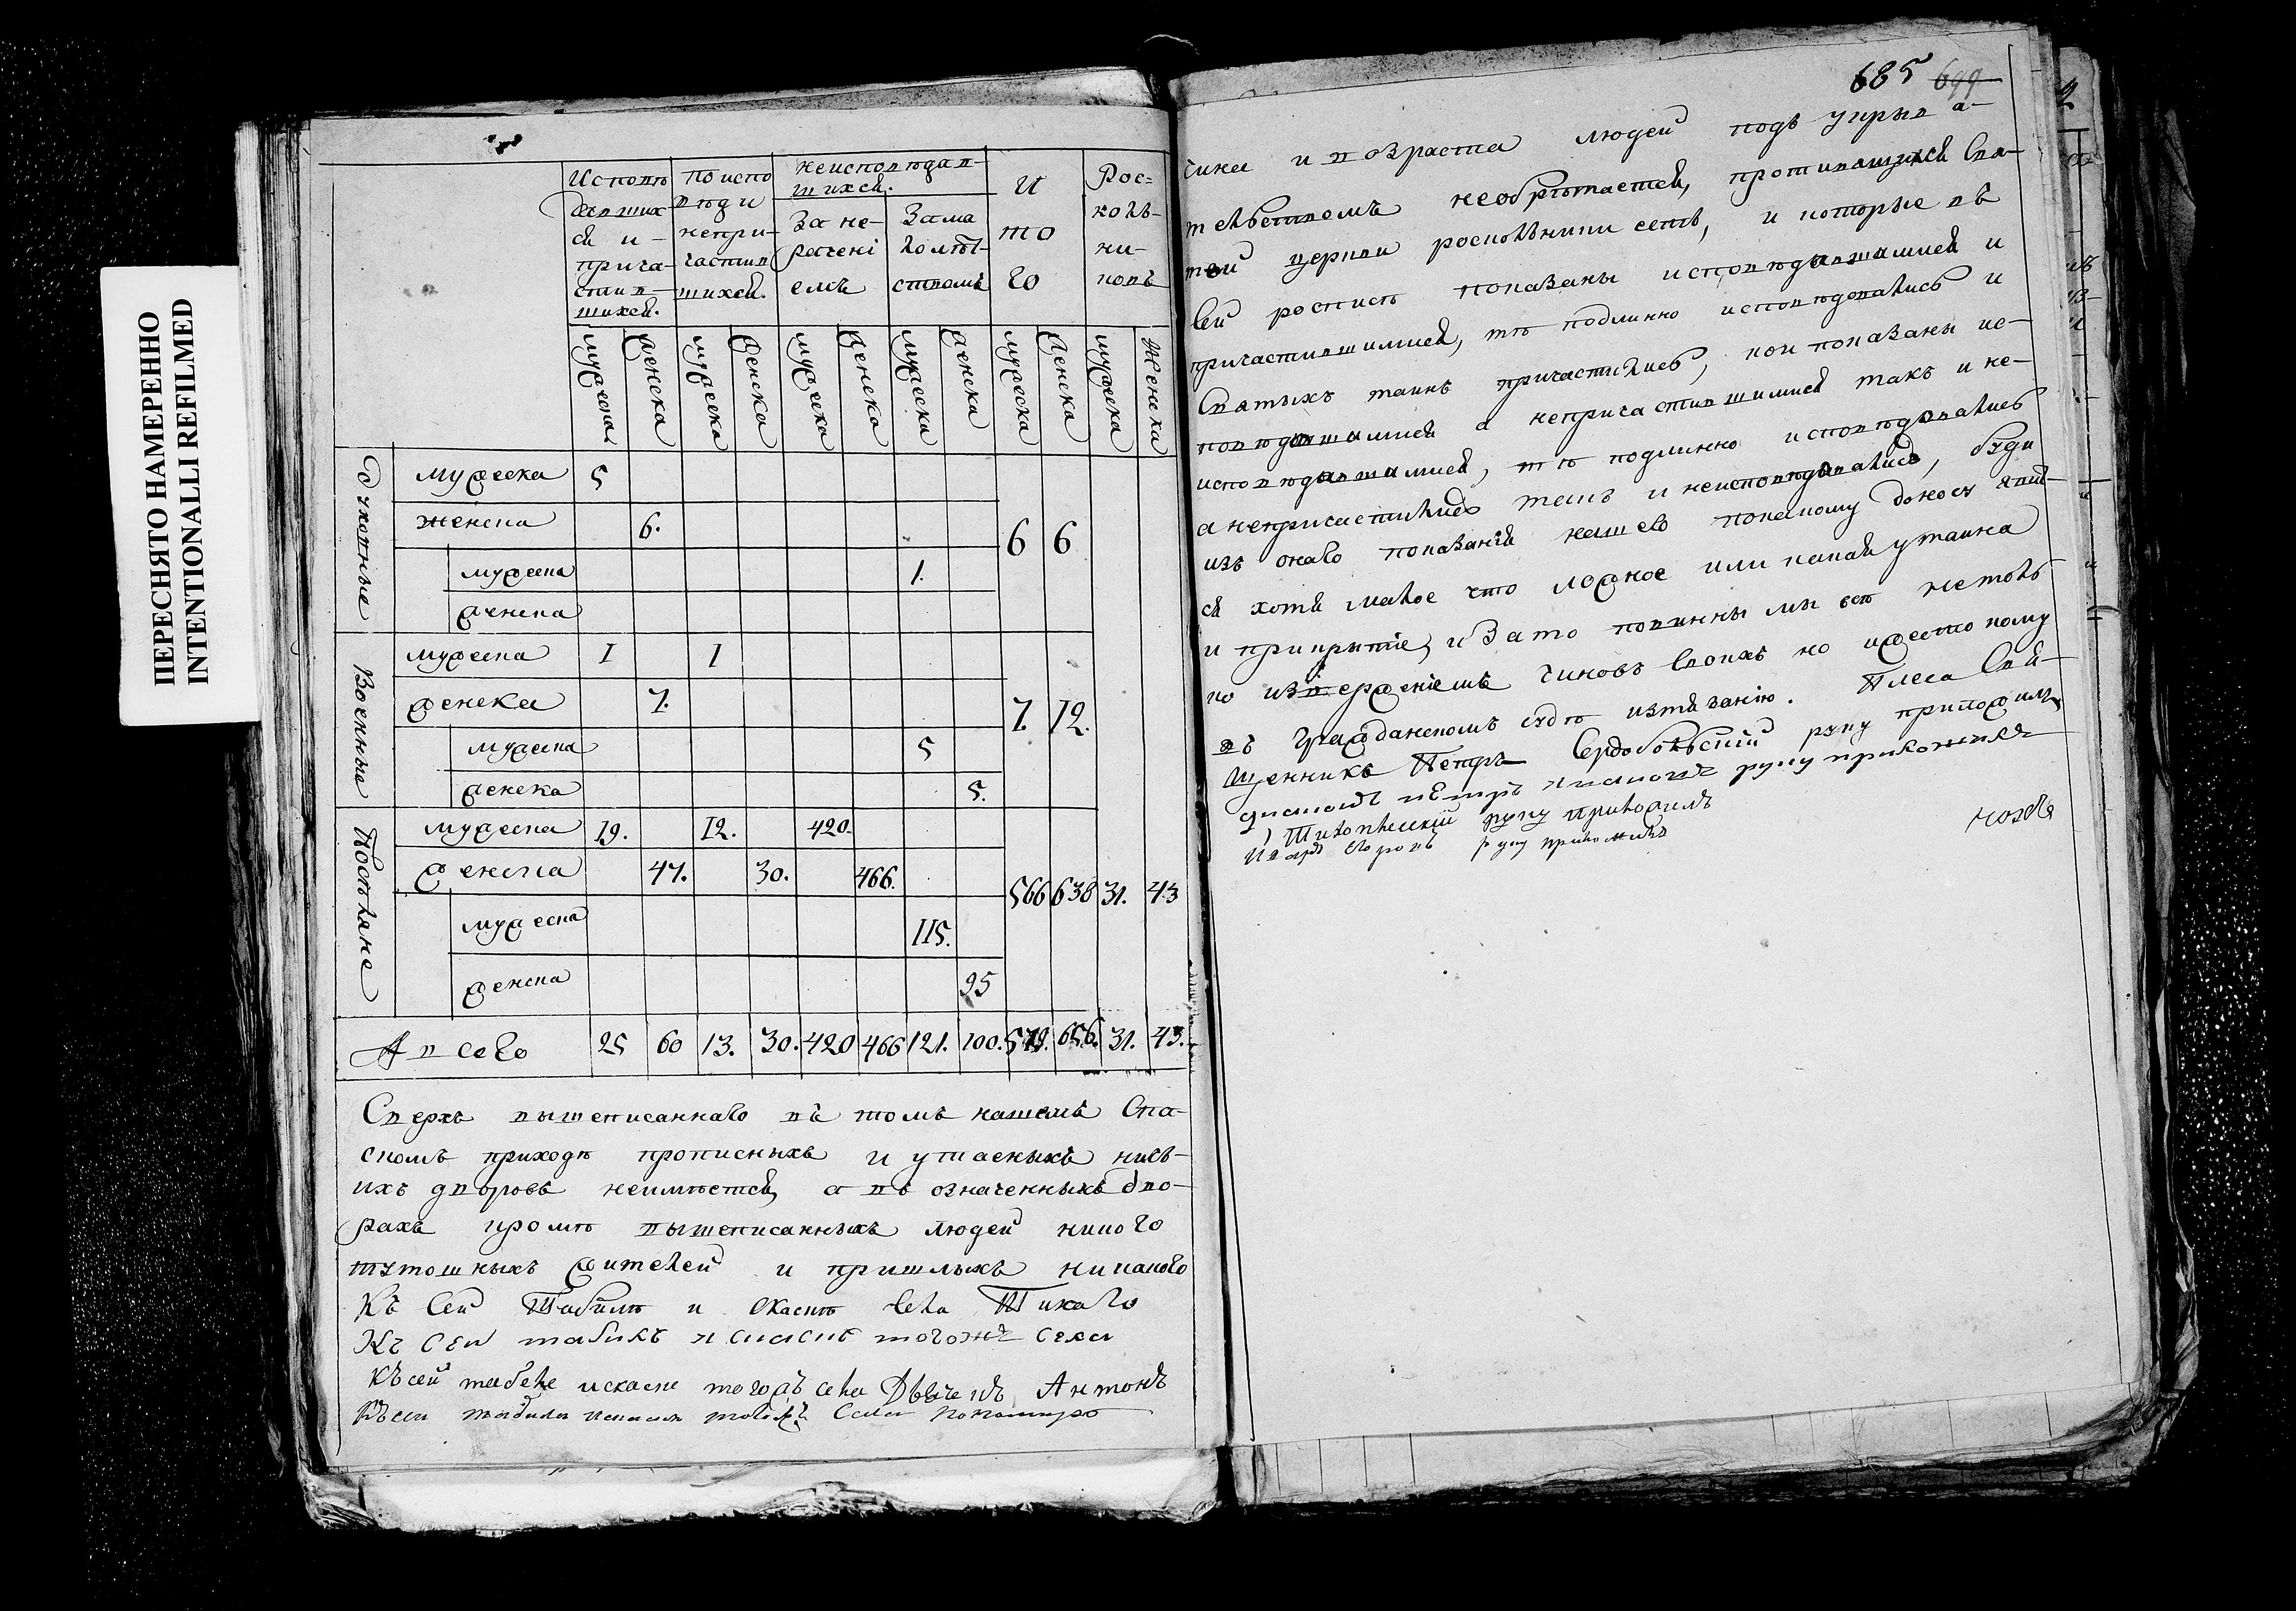 ПЕРЕСНЯТО НАМЕРЕННО
INTENTIONALLI REFILMED
Исповѣ
давших
ся и
прича-
стив-
шихся.
По испо
вѣди
непри-
частив
шихся.
неисповѣдав-
шихся.
За не-
рачені
емъ
За ма
лолѣт-
ствомъ
И
то
го
Рос-
коль-
ни-
ковъ
мужеска женска мужеска женска мужеска женска мужеска женска мужеска женска мужеска Женска
Духовные
мужеска 5
женска 6. 6 6
мужеска 1.
женска
Военные
мужеска 1 1
женска 7. 7. 12.
мужеска 5
женска 5.
Посѣляне
мужеска 19. 12. 420.
женска 47. 30. 466. 566 638 31. 43
мужеска 115.
женска 95
А всего 25 60 13. 30. 420 466 121. 100. 579. 656. 31. 43.
Сверхъ вышеписаннаго въ томъ нашемъ Спа-
скомъ приходѣ прописныхъ и утаеныхъ ничь-
ихъ дворовъ неимѣется, а въ означенныхъ дво-
рахъ кромѣ вышеписанныхъ людей никого
тутошныхъ жителей и пришлыхъ никакого
Къ сей Табели и скаскѣ села Тихаго
Къ сеи табилѣ и скаскѣ тогожъ села
Къ сей табеле искаске тогожъ села Дьячекъ Антонъ
Къ сеи табили искаски тогожъ Села пономарь
685 699
чина и возраста людей подъ укрыва-
тельствомъ необрѣтается, противящихся Свя-
тей церкви роскольники есть, и которые въ
сей росписи показаны исповѣдавшимися и
причастившимися, тѣ подлинно исповѣдовались и
Святыхъ таинъ причастились, кои показаны ис-
повѣдавшимися а непричастившимися такъ и не-
исповѣдавшимися, тѣ подлинно исповѣдовались
а непричастились такъ и неисповѣдовались, буди
изъ онаго показанія нашего покакому доносу явит-
ся хотя малое что ложное или какая утайка
и прикрытіе, и за то повинны мы есть нетоль
ко изверженіемъ чиновъ своихъ но и жестокому
въ гражданскомъ судѣ изтязанію. Спя-
щенникъ Петръ Сердобольскій руку приложилъ
руку приложилъ
руку приложилъ
Егоровъ руку приложилъ